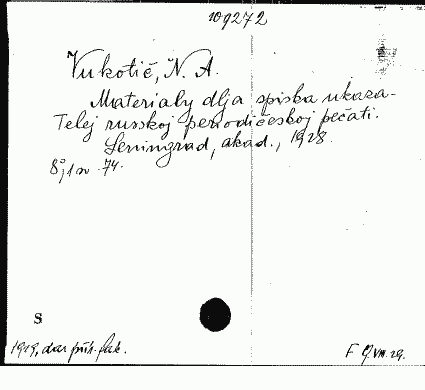 109272
Vukotič, N. A.
Materialy dlja spiska ukaza-
Telej russkoj periodičeskoj pečati.
Leningrad, akad., 1928.
8°, 74.
S
1929, dar
F 9 VII. 29.